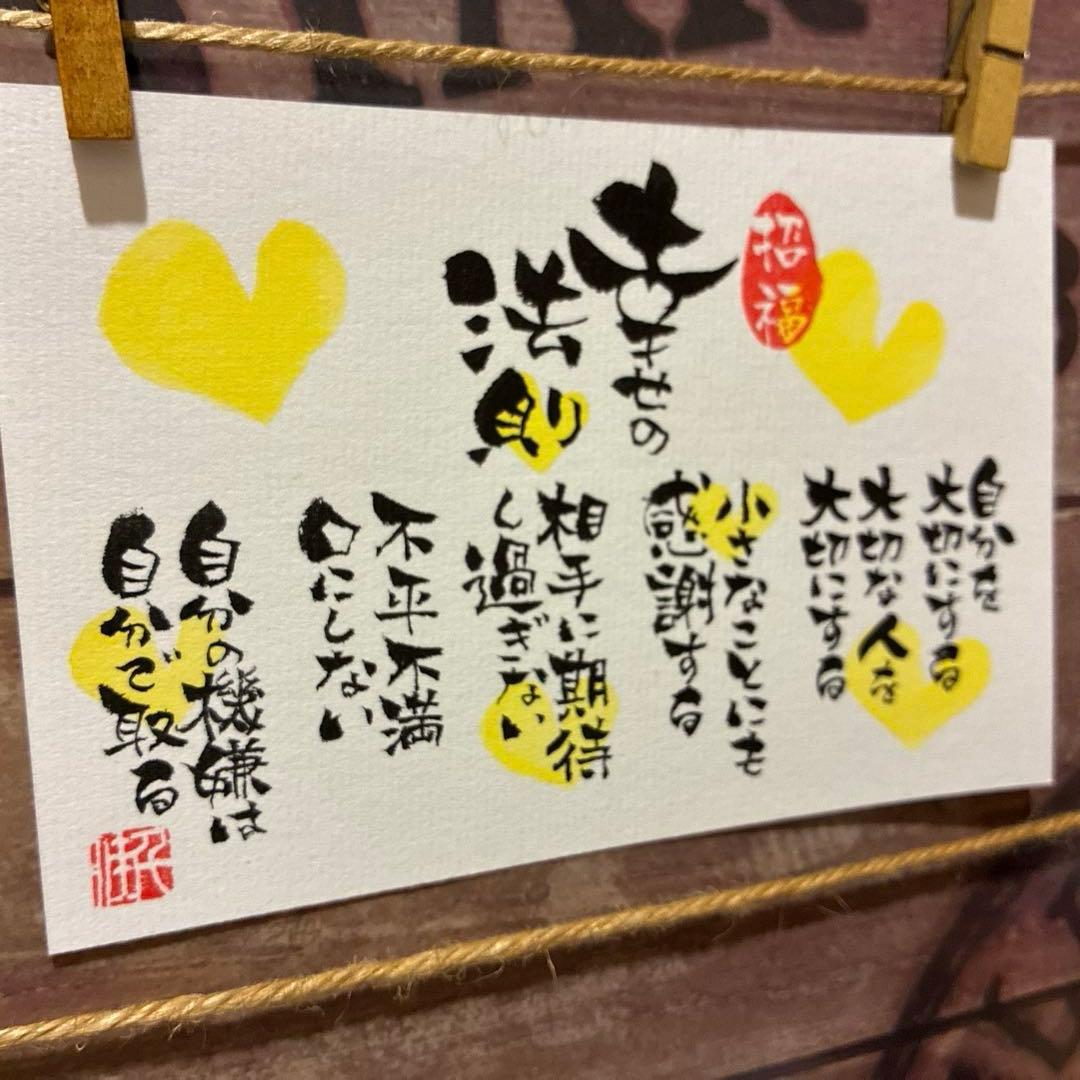 招福
幸せの
法則
自分を
大切にする
大切な人を
大切にする
小さなことにも
感謝する
相手に期待
し過ぎない
不平不満
口にしない
自分の機嫌は
自分で取る